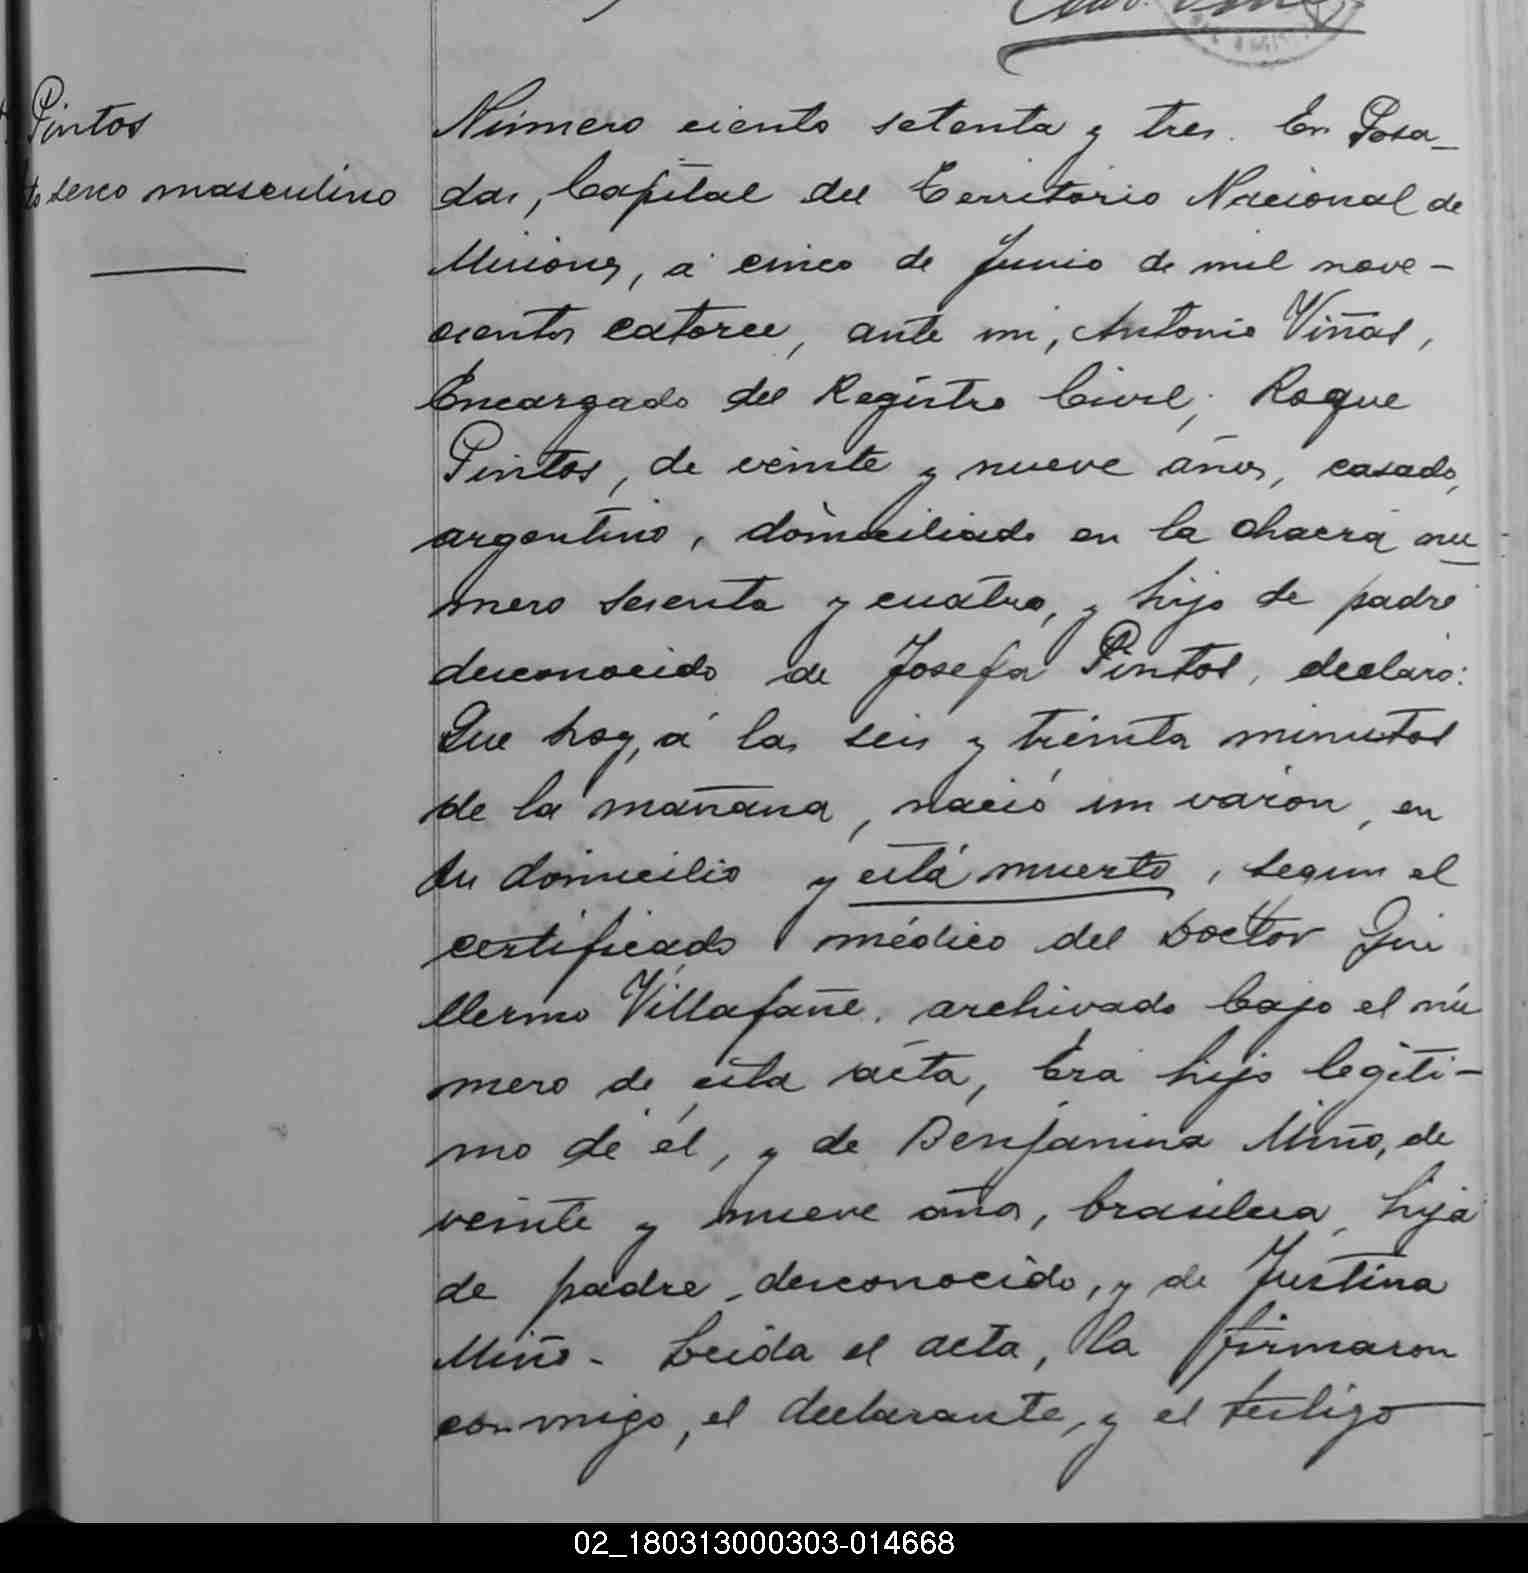 Pintos
sexo masculino
Número ciento setenta y tres. En Posa_
das, Capital del Territorio Nacional de
Misiones, á cinco de Junio de mil nove-
cientos catorce, ante mi, Antonio Viñas,
Encargado del Registro Civil; Roque
Pintos, de veinte y nueve años, casado,
argentino, domiciliado en la chacra nu
mero sesenta y cuatro, y hijo de padre
desconocido de Josefa Pintos, declaró:
Que hoy, á las seis y treinta minutos
de la mañana, nació un varon, en
su domicilio y está muerto, segun el
certificado médico del Doctor Gui
llermo Villafañe, archivado bajo el nú
mero de esta acta, Era hijo legiti-
mo de él, y de Benjamina Miño, de
veinte y nueve años, brasilera, hija
de padre desconocido, y de Justina
Miño - Leida el acta, la firmaron
conmigo, el declarante, y el testigo
02_180313000303-014668